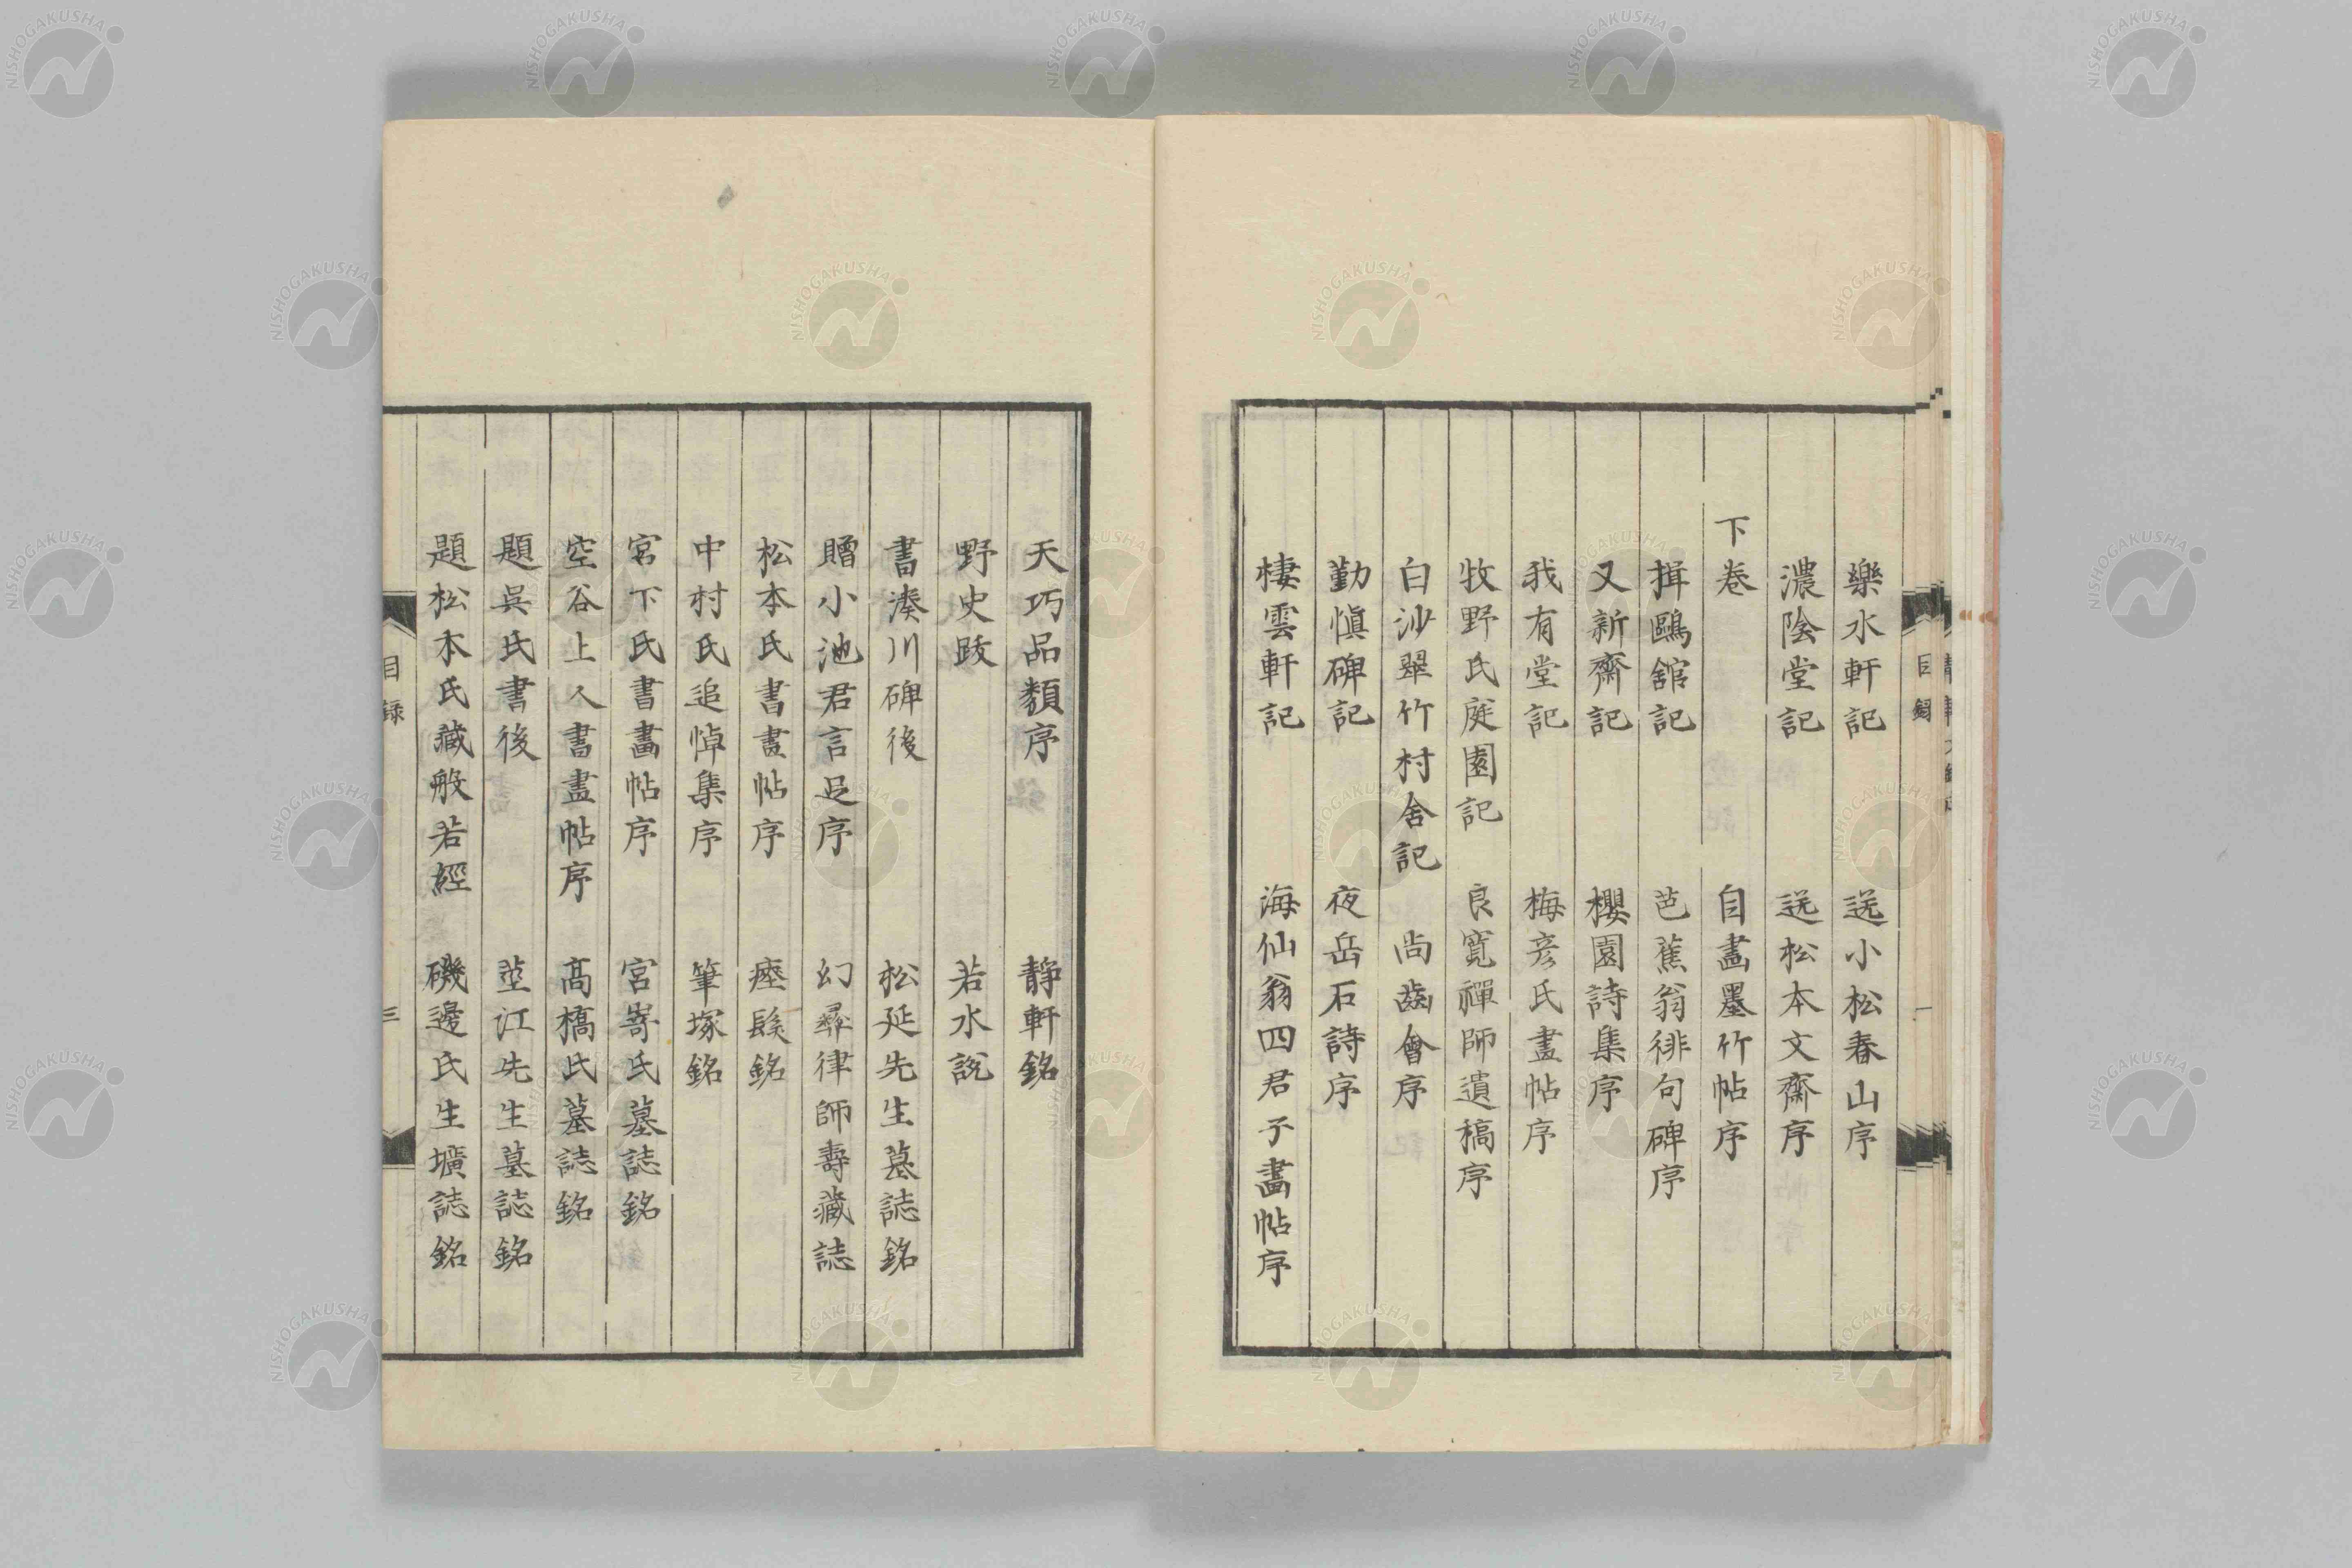 樂水軒記　送小松春山序
濃陰堂記　送松本文齋序
下卷　自畫墨竹帖序
揖鷗舘記　芭蕉翁徘句碑序
又新齋記　櫻園詩集序
我有堂記　梅彦氏畫帖序
牧野氏庭園記　良寛禪師遺稿序
白沙翠竹村舍記　尚齒會序
勤愼碑記　夜岳石詩序
棲雲軒記　海仙翁四君子畫帖序
天巧品類序　靜軒銘
野史跋　若水說
書湊川碑後　松延先生墓誌銘
贈小池君言足序　幻彝律師壽藏誌
松本氏書畫帖序　瘞髮銘
中村氏追悼集序　筆塚銘
宮下氏書畫帖序　宮嵜氏墓誌銘
空谷上人書畫帖序　髙橋氏墓誌銘
題吳氏書後　莖江先生墓誌銘
題松本氏藏般若經　磯邊氏生壙誌銘
目録　三